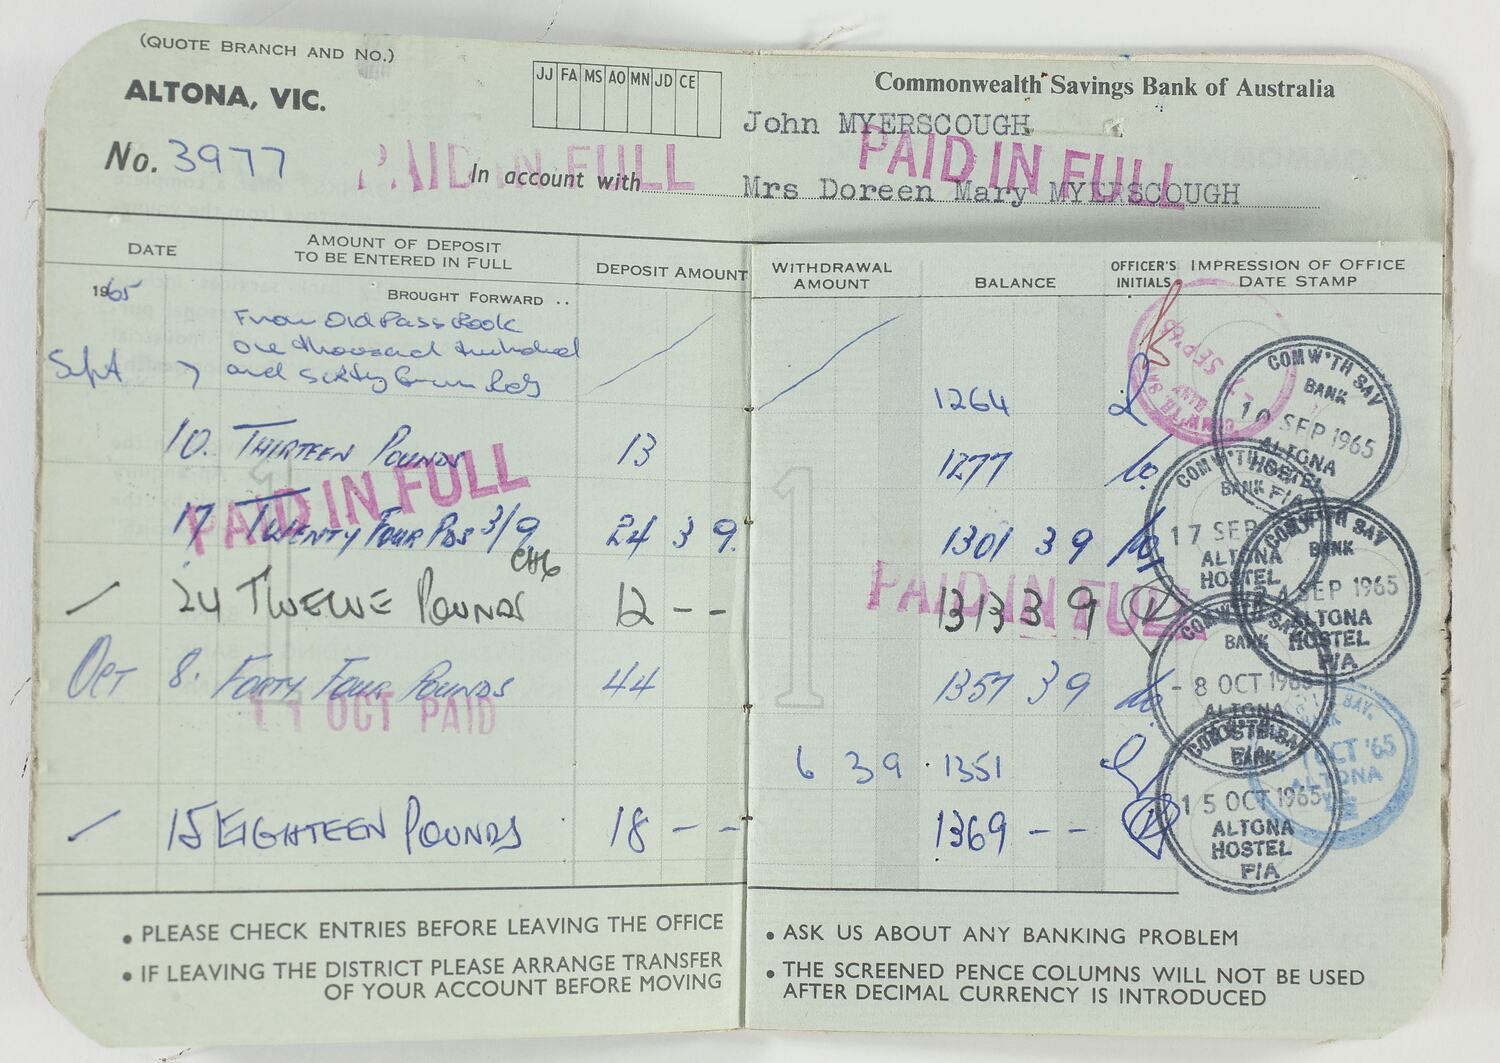 (QUOTE BRANCH AND NO.)
ALTONA, VIC.
JJ FA MS AO MN JD CE
Commonwealth Savings Bank of Australia
John MYERSCOUGH
No. 3977
PAID IN FULL
In account with
PAID IN FULL
Mrs Doreen Mary MYERSCOUGH
DATE
AMOUNT OF DEPOSIT
TO BE ENTERED IN FULL
DEPOSIT AMOUNT
WITHDRAWAL
AMOUNT
BALANCE
OFFICER'S
INITIALS
IMPRESSION OF OFFICE
DATE STAMP
1965
BROUGHT FORWARD ..
From Old Pass Book
one thousand two hundred
Sept 7 and sixty four
1264
10. THIRTEEN POUNDS 13 1277
PAID IN FULL
17 TWENTY FOUR PDS 3/9 24 3 9. 1301 3 9
24 TWELVE POUNDS 12 - - 1313 3 9
PAID IN FULL
OCT 8. FORTY FOUR POUNDS 44 1357 3 9
OCT PAID
6 3 9 1351
15 EIGHTEEN POUNDS 18 - - 1369 - -
SEP '65
COMW'TH SAV
BANK
10 SEP 1965
ALTONA
HOSTEL
P/A
COMW'TH
BANK
17 SEP
ALTONA
HOSTEL
COMW'TH SAV
BANK
24 SEP 1965
ALTONA
HOSTEL
P/A
BANK
- 8 OCT 1965
ALTONA
OCT '65
ALTONA
BANK
15 OCT 1965
ALTONA
HOSTEL
P/A
1
1
• PLEASE CHECK ENTRIES BEFORE LEAVING THE OFFICE
• IF LEAVING THE DISTRICT PLEASE ARRANGE TRANSFER
OF YOUR ACCOUNT BEFORE MOVING
• ASK US ABOUT ANY BANKING PROBLEM
• THE SCREENED PENCE COLUMNS WILL NOT BE USED
AFTER DECIMAL CURRENCY IS INTRODUCED